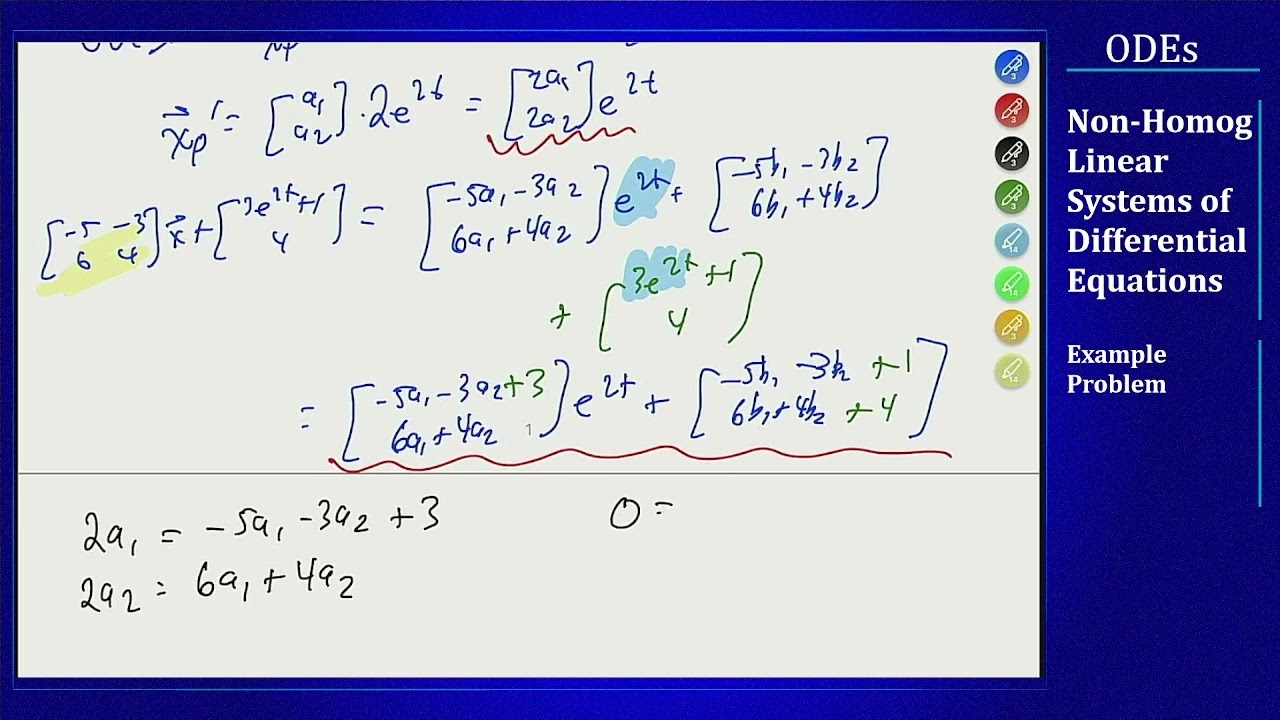 xp
x⃗p' = [a₁ a₂] · 2e^2t = [2a₁ 2a₂] e^2t
[-5 -3 6 4] x⃗ + [3e^2t+1 4] = [-5a₁ -3a₂ 6a₁+4a₂] e^2t + [-5b₁ -3b₂ 6b₁+4b₂]
+ [3e^2t +1 4]
= [-5a₁ -3a₂ +3 6a₁+4a₂] e^2t + [-5b₁ -3b₂ +1 6b₁+4b₂ +4]
2a₁ = -5a₁ -3a₂ +3
2a₂ = 6a₁ + 4a₂
0 =
ODEs
Non-Homog
Linear
Systems of
Differential
Equations
Example
Problem
3
3
3
3
14
14
3
14